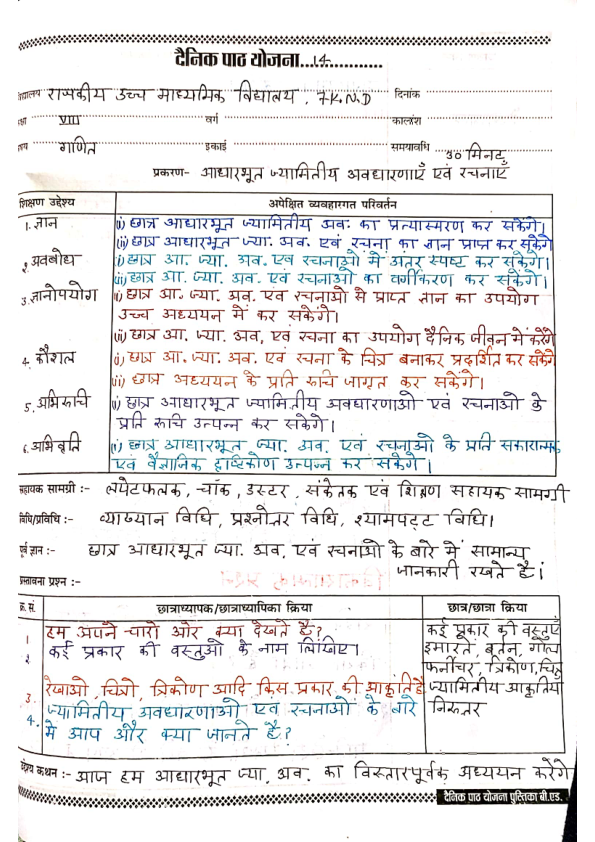 दैनिक पाठ योजना...14............
विद्यालय राजकीय उच्च माध्यमिक विद्यालय, 7K.N.D दिनांक
कक्षा VIII वर्ग कालांश
विषय गणित इकाई समयावधि 30 मिनट
प्रकरण- आधारभूत ज्यामितीय अवधारणाएँ एवं रचनाएँ
शिक्षण उद्देश्य अपेक्षित व्यवहारगत परिवर्तन
1. ज्ञान (i) छात्र आधारभूत ज्यामितीय अव. का प्रत्यास्मरण कर सकेंगे।
(ii) छात्र आधारभूत ज्या. अव. एवं रचना का ज्ञान प्राप्त कर सकेंगे
2. अवबोध (i) छात्र आ. ज्या. अव. एवं रचनाओं में अंतर स्पष्ट कर सकेंगे।
(ii) छात्र आ. ज्या. अव. एवं रचनाओं का वर्गीकरण कर सकेंगे।
3. ज्ञानोपयोग (i) छात्र आ. ज्या. अव. एवं रचनाओं से प्राप्त ज्ञान का उपयोग
उच्च अध्ययन में कर सकेंगे।
(ii) छात्र आ. ज्या. अव. एवं रचना का उपयोग दैनिक जीवन में करेंगे
4. कौशल (i) छात्र आ. ज्या. अव. एवं रचना के चित्र बनाकर प्रदर्शित कर सकेंगे
(ii) छात्र अध्ययन के प्रति रुचि जागृत कर सकेंगे।
5. अभिरुचि (i) छात्र आधारभूत ज्यामितीय अवधारणाओं एवं रचनाओं के
प्रति रुचि उत्पन्न कर सकेंगे।
6. अभिवृति (i) छात्र आधारभूत ज्या. अव. एवं रचनाओं के प्रति सकारात्मक
एवं वैज्ञानिक दृष्टिकोण उत्पन्न कर सकेंगे।
सहायक सामग्री :- लपेटफलक, चाॅक, डस्टर, संकेतक एवं शिक्षण सहायक सामग्री
विधि/प्रविधि :- व्याख्यान विधि, प्रश्नोत्तर विधि, श्यामपट्ट विधि।
पूर्व ज्ञान :- छात्र आधारभूत ज्या. अव. एवं रचनाओं के बारे में सामान्य
जानकारी रखते है।
प्रस्तावना प्रश्न :-
क्र. सं. छात्राध्यापक/छात्राध्यापिका क्रिया छात्र/छात्रा क्रिया
1 हम अपने चारो ओर क्या देखते हैं? कई प्रकार की वस्तुएँ
2 कई प्रकार की वस्तुओं के नाम लिखिए। इमारतें, बर्तन,
फर्नीचर, त्रिकोण, चित्र
3. रेखाओं, चित्रो, त्रिकोण आदि किस प्रकार की आकृति है ज्यामितीय आकृतियां
4. ज्यामितीय अवधारणाओं एवं रचनाओं के बारे निरुत्तर
में आप और क्या जानते है?
उद्देश्य कथन :- आज हम आधारभूत ज्या. अव. का विस्तारपूर्वक अध्ययन करेंगे
दैनिक पाठ योजना पुस्तिका बी.एड.